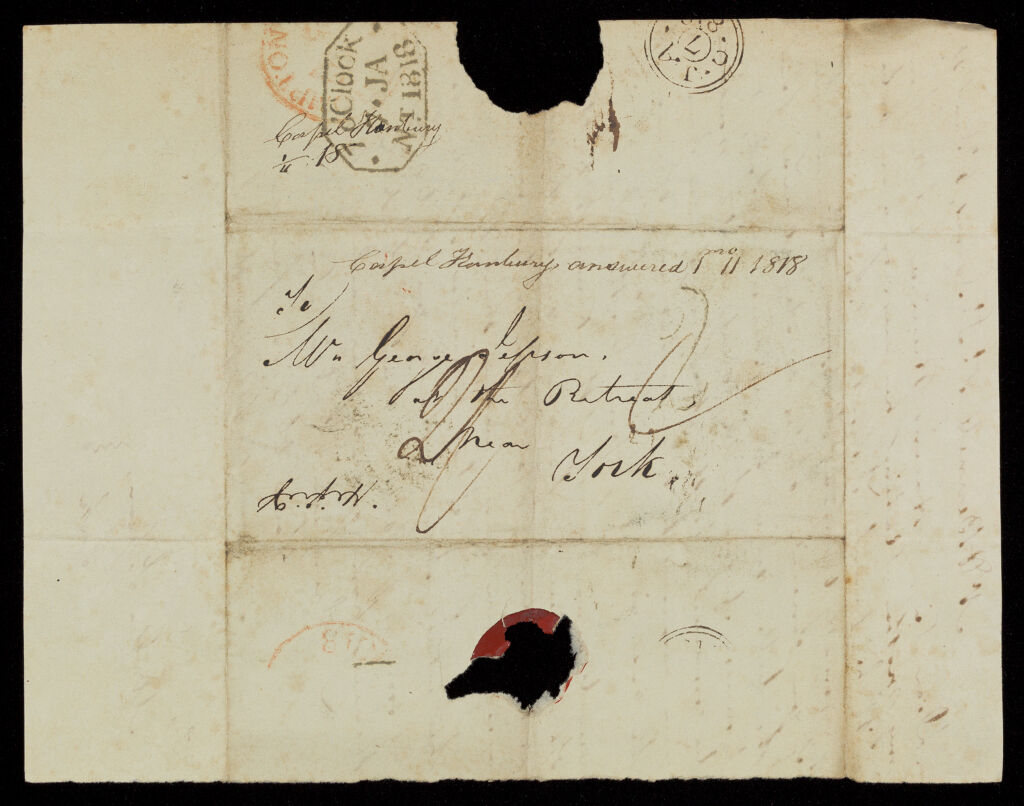 PTON
7 o'Clock
JA
NT 1818
C
7
JA
818
Capel Hanbury
1/11 18
Capel Hanbury, answered 1mo 11 1818
To
Mr. George Jepson.
at the Retreat,
near
York